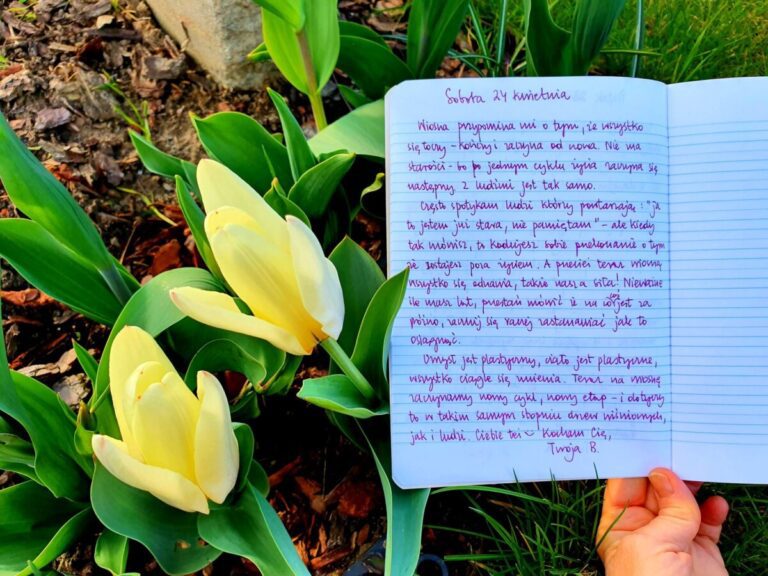 Sobota 24 kwietnia
Wiosna przypomina mi o tym, że wszystko
się toczy - kończy i zaczyna od nowa. Nie ma
starości - bo po jednym cyklu życia zaczyna się
następny. Z ludźmi jest tak samo.
Często spotykam ludzi którzy powtarzają: "ja
to jestem już stara, nie pamiętam" - ale kiedy
tak mówisz, to kodujesz sobie przekonanie o tym
że zostajesz poza życiem. A przecież teraz wiosną
wszystko się odnawia, także nasza siła! Nieważne
ile masz lat, przestań mówić że na coś jest za
późno, zacznij się raczej zastanawiać jak to
osiągnąć.
Umysł jest plastyczny, ciało jest plastyczne,
wszystko ciągle się zmienia. Teraz na wiosnę
zaczynamy nowy cykl, nowy etap - i dotyczy
to w takim samym stopniu drzew wiśniowych,
jak i ludzi. Ciebie też Kocham Cię,
Twoja B.